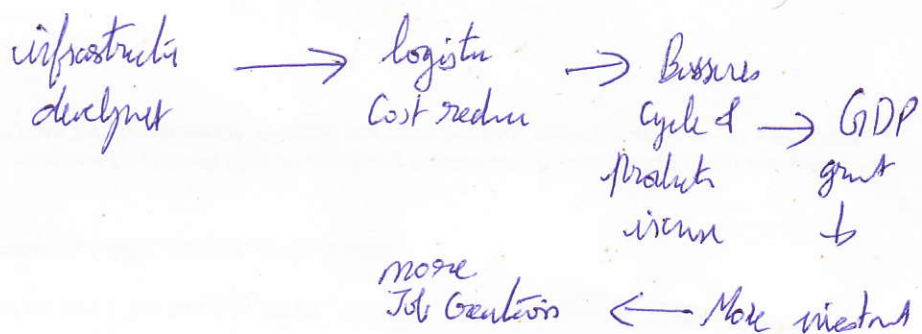 infrastructu
develpmet
→ logistu
Cost redu
→ Bussines
Cycle &
Producti
increase
→ GDP
grwt
↓
More investmt
←
more
Job Creation